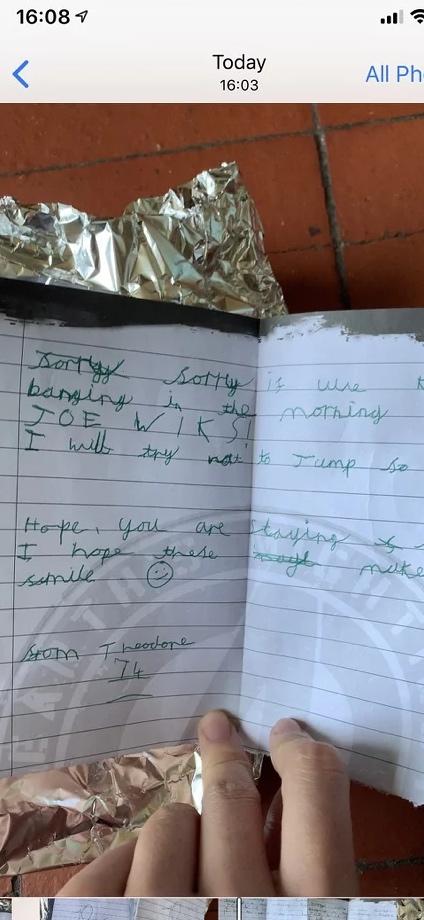 16:08
Today
16:03
All Pho
Sorryy Sorry if wue k
banging in the morning
JOE WIKS!
I will try not to Jump so
Hope, you are staying s
I hope these make
smile
from Theodore
74